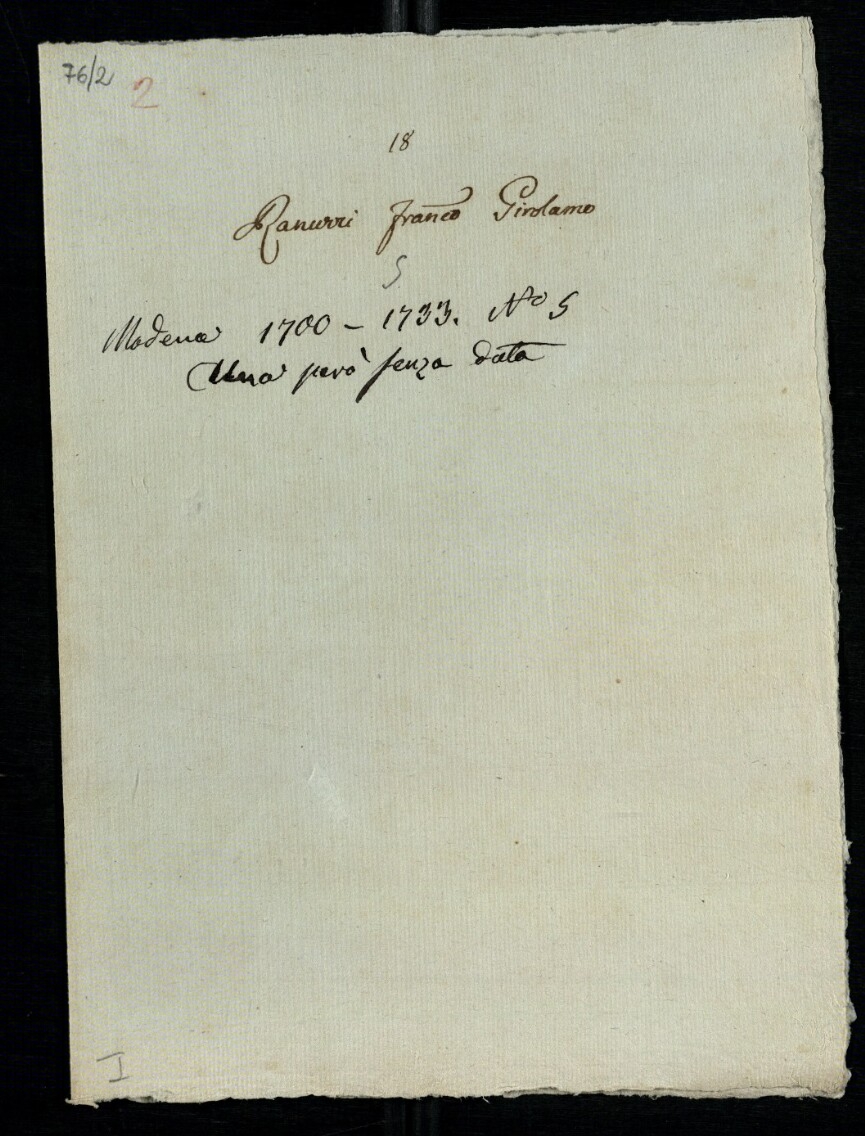 76/2
2
18
Ranuzzi Franco Girolamo
5
Modena 1700 – 1733. No 5
Una però senza data
I